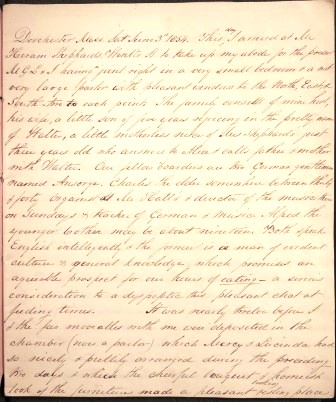 Dorchester Mass Sat June 3d 1854. This day I arrived at Mr
Hiram Shephard's, Winter St to take up my abode for the present
M. C. D & I having joint right in a very small bedroom & a not
very large parlor with pleasant windows to the North, East &
South two to each point. The family consists of mine host
his wife, a little son of five years rejoicing in the pretty name
of Walter, a little motherless niece of Mrs Shephard's just
three years old who answers to Alice & calls father & mother
with Walter. Our fellow boarders are two German gentlemen
named Ansorge, Charles the elder somewhere between thirty
& forty organist at Mr Hall's & director of the music there
on Sundays & teacher of German & Music. Alfred the
younger brother may be about nineteen. Both speak
English intelligently & the former is a man of evident
culture & general knowledge which promises an
agreable prospect for our hours of eating - a serious
consideration to a dyspeptic this pleasant chat at
feeding times. It was nearly twelve before I
& the few moveables with me were deposited in the
chamber (now a parlor) which Mercy & Lucinda had
so nicely & prettily arranged during the preceding
two days & which the cheerful bouquet & homeish
look of the furniture made a pleasant resting place